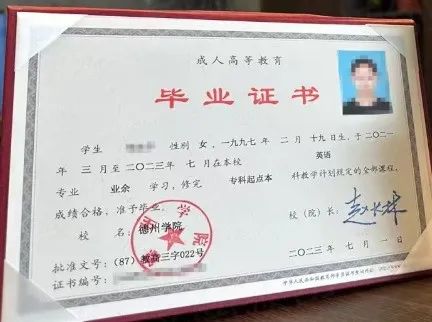 成人高等教育
毕业证书
学生 性别 女，一九九七年 二 月 十九日生，于二〇二一
年 三 月至二〇二三年 七 月在本校 英语
专业 业余 学习，修完 专科起点本 科教学计划规定的全部课程，
成绩合格，准予毕业。
校 名： 德州学院
校（院）长：
批准文号：(87) 教高三字022号
二〇二三年 七 月 一 日
证书编号：